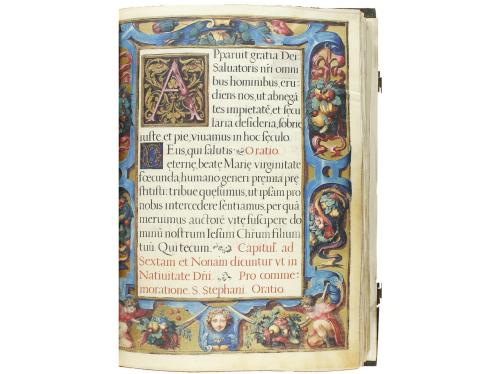 APparuit gratia Dei
Saluatoris nr̃i omni
bus hominibus, eru-
diens nos, ut abnegã
tes impietatẽ, et sęcu
laria desideria, sobrie
iuste et pie, viuamus in hoc sęculo.
DEus, qui salutis Oratio.
ęternę, beatę Marię virginitate
fœcunda, humano generi premia prę
stitisti: tribue quęsumus, ut ipsam pro
nobis intercedere sentiamus, per quã
meruimus auctorẽ vitę suscipere do
minũ nostrum Iesum Chr̃um filium
tuũ. Qui tecum. Capitul̃. ad
Sextam et Nonam dicuntur vt in
Natiuitate Dñi. Pro comme-
moratione. S. Stephani. Oratio.